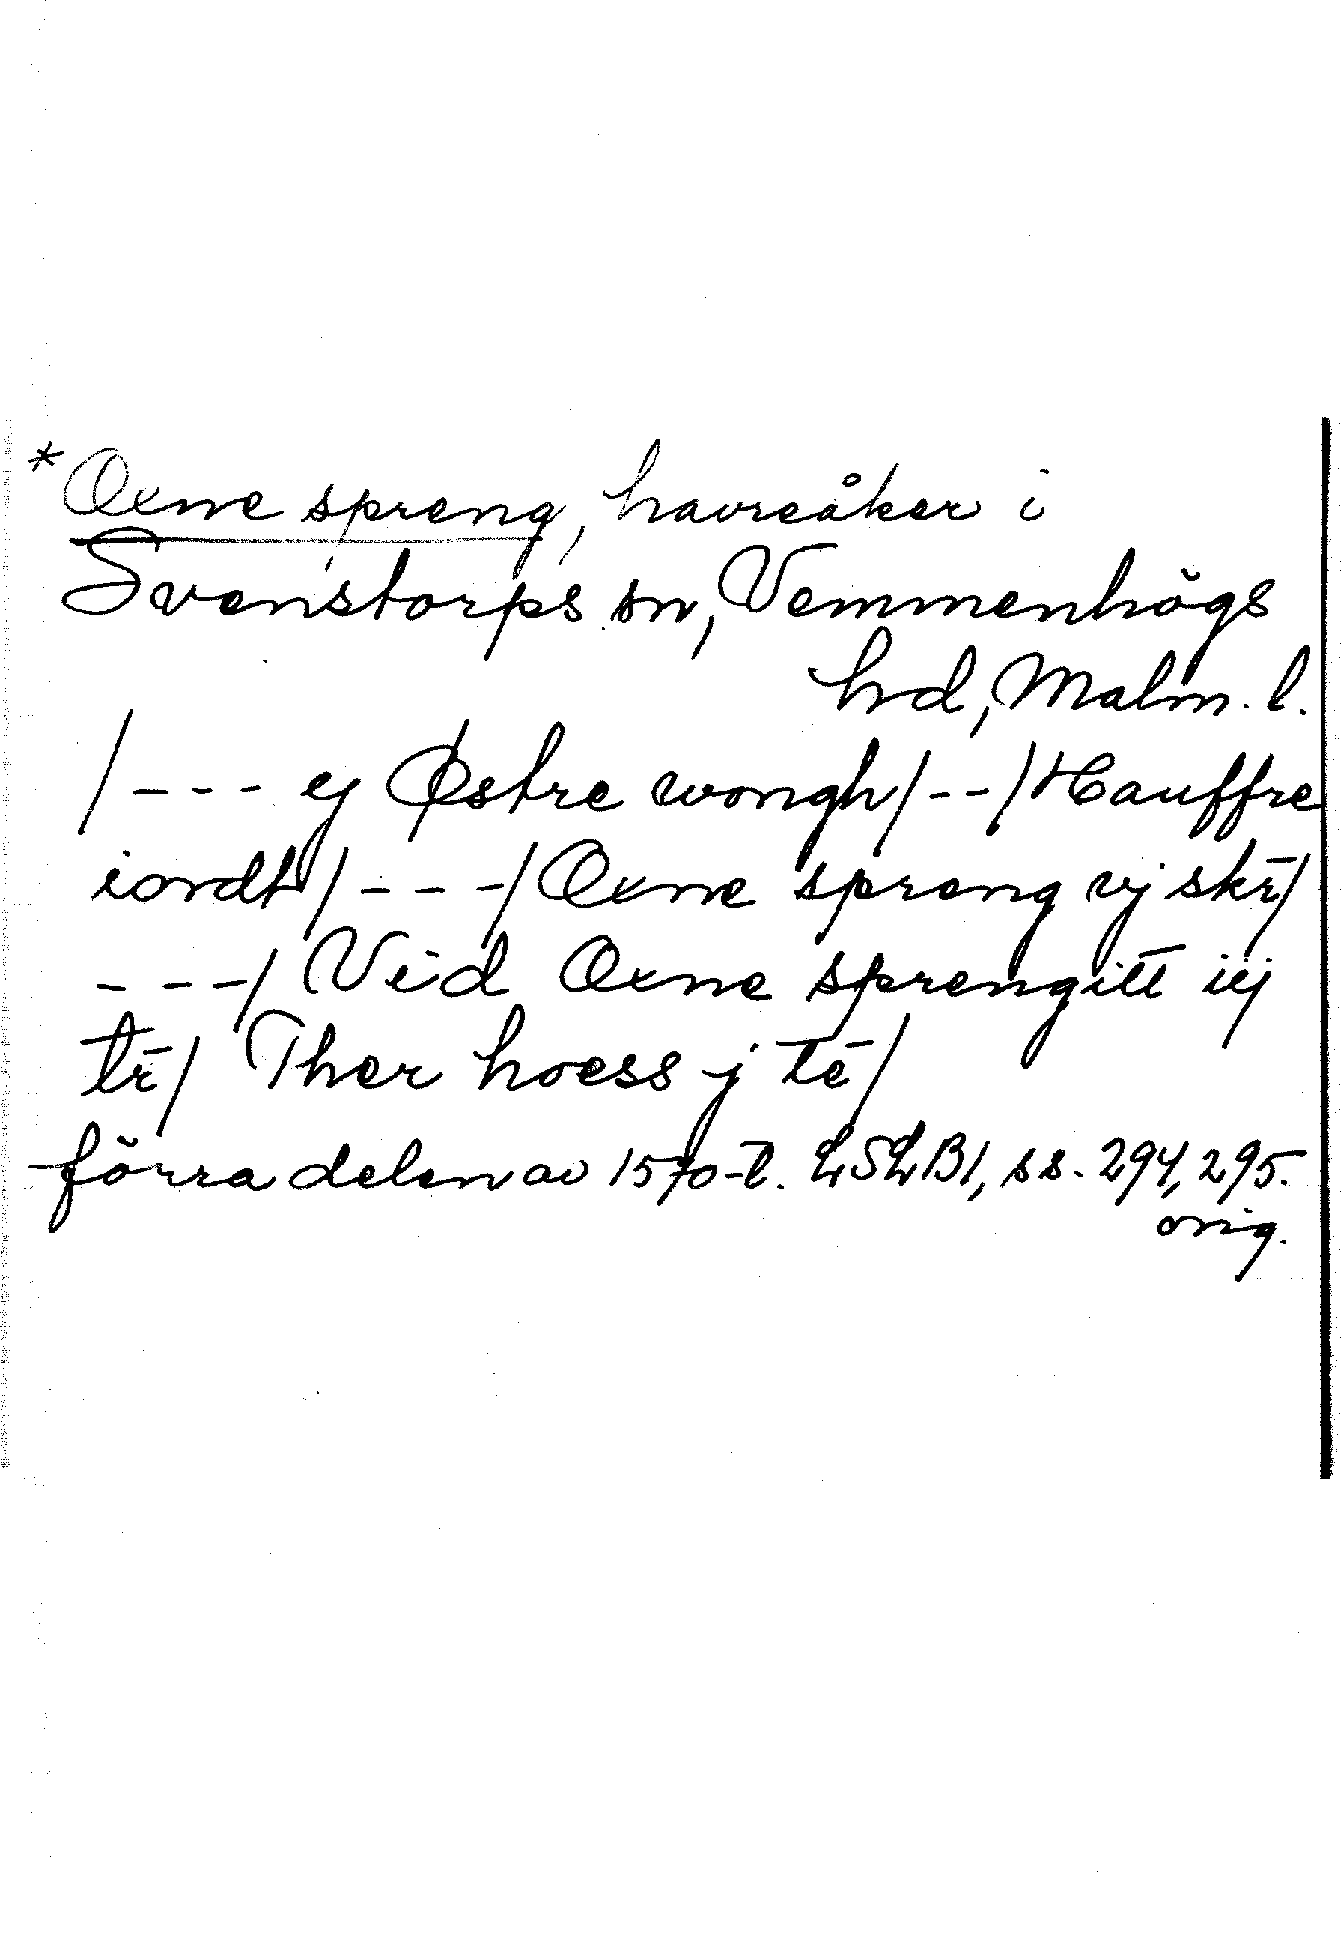 *Oxne spreng, havreåker i
Svenstorps sn, Vemmenhögs
hd, Malm. l.
/--- ej Østre wongh/--/Hauffre
iordh/---/Oxne spreng vj skr̄/
---/ Vid Oxne sprengitt iij
tr̄/ Ther hoess j tē/
förra delen av 1570-t. LSLB1, ss. 294, 295.
orig.